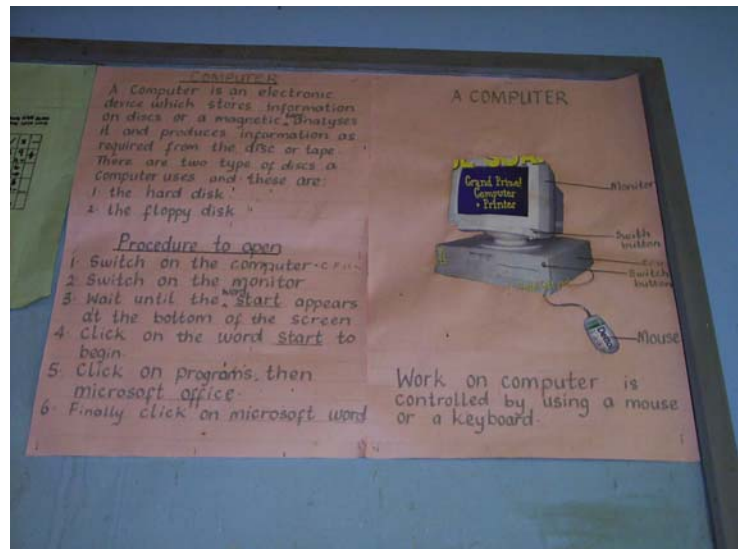 COMPUTER
A Computer is an electronic
device which stores information
on discs or a magnetic tape analyses
it and produces information as
required from the disc or tape.
There are two type of discs a
computer uses and these are:
1. the hard disk
2. the floppy disk
Procedure to open
1. Switch on the computer
2. Switch on the monitor
3. Wait until the word Start appears
at the bottom of the screen
4. Click on the word Start to
begin
5. Click on programs, then
microsoft office.
6. Finally click on microsoft word
A COMPUTER
Grand Prize!
Computer
+ Printer
Monitor
Swith
button
Switch
button
Mouse
Work on computer is
controlled by using a mouse
or a keyboard.